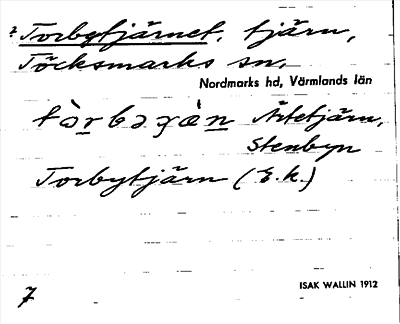 ? Torbytjärnet, tjärn,
Töcksmarks sn.
Nordmarks hd, Värmlands län
Ärtetjärn,
Stenbyn
Torbytjärn (E.k.)
7
ISAK WALLIN 1912